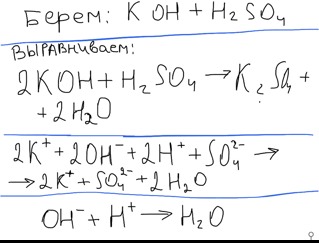 Берем: KOH + H₂SO₄
Выравниваем:
2KOH + H₂SO₄ → K₂SO₄ +
+ 2H₂O
2K⁺ + 2OH⁻ + 2H⁺ + SO₄²⁻ →
→ 2K⁺ + SO₄²⁻ + 2H₂O
OH⁻ + H⁺ → H₂O